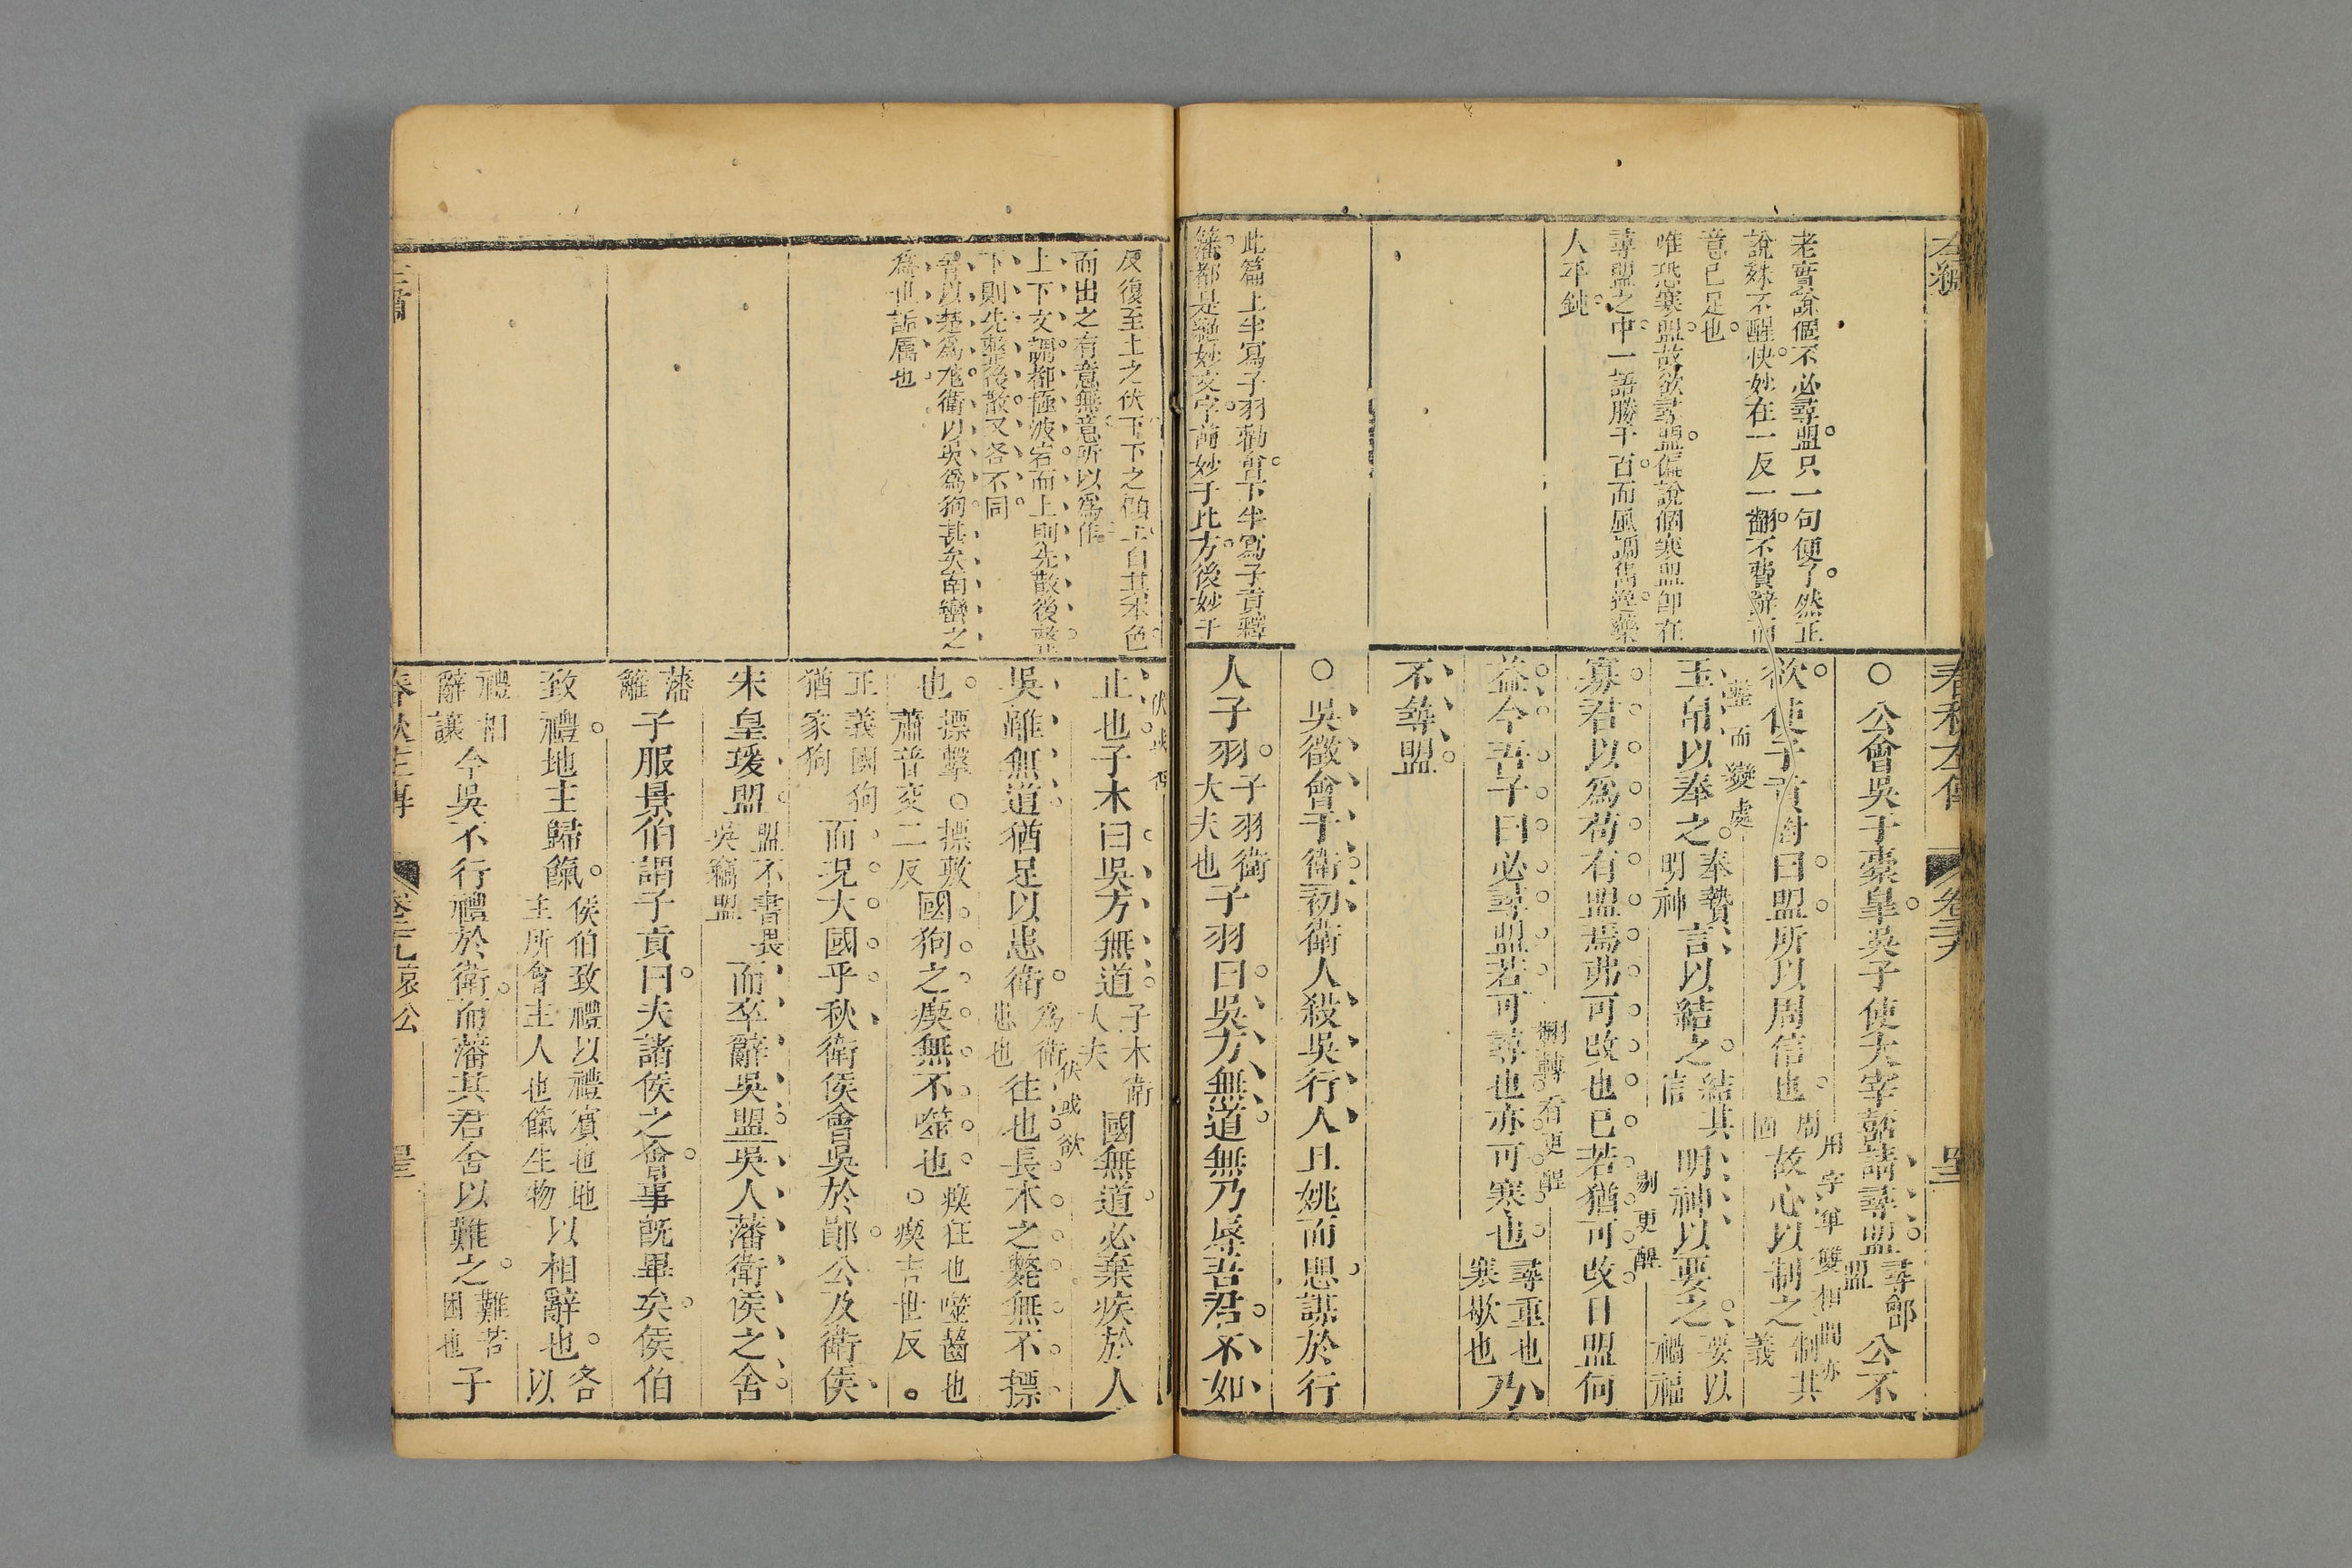 左繡
老實說個不必尋盟只一句便了然正
說殊不醒快妙在一反一翻不費辭而
意已足也
唯恐寒盟故欲尋盟偏說個寒盟卽在
尋盟之中一語勝千百而風調雋逸藥
人不鈍
此篇上半寫子羽勸會下半寫子貢釋
藩都是絕妙文字前妙于比方後妙于
春秋左傳
卷二九
○公會吳子橐臯吳子使大宰嚭請尋盟尋鄫盟公不
用字單雙相間亦
欲使子貢對曰盟所以周信也周固故心以制之制其義
整而變處
玉帛以奉之奉贄明神言以結之結其信明神以要之要以禍福
剔更醒
寡君以爲苟有盟焉弗可改也已若猶可改日盟何
翻轉看更醒
益今吾子曰必尋盟若可尋也亦可寒也尋重也寒歇也乃
不尋盟
○吳徵會于衛初衛人殺吳行人且姚而思謀於行
人子羽子羽衛大夫也子羽曰吳方無道無乃辱吾君不如
反復至上之伏下下之顧上自其本色
而出之有意無意所以爲佳
上下文調都極波宕而上則先散後整
下則先整後散又各不同
晉以楚爲尨衛以吳爲狗甚矣南蠻之
爲世詬厲也
伏或不
止也子木曰吳方無道子木衛大夫國無道必棄疾於人
伏或欲
吳雖無道猶足以患衛爲衛患也往也長木之斃無不摽
也摽擊○摽敷蕭音交二反國狗之瘈無不噬也瘈狂也噬齧也○瘈吉世反。
正義國狗猶家狗而況大國乎秋衛侯會吳於鄖公及衛侯
宋皇瑗盟盟不書畏吳竊盟而卒辭吳盟吳人藩衛侯之舍
藩籬子服景伯謂子貢曰夫諸侯之會事既畢矣侯伯
致禮地主歸餼侯伯致禮以禮賓也地主所會主人也餼生物以相辭也各以
禮相辭讓今吳不行禮於衛而藩其君舍以難之難苦困也子
春秋左傳
卷二九哀公